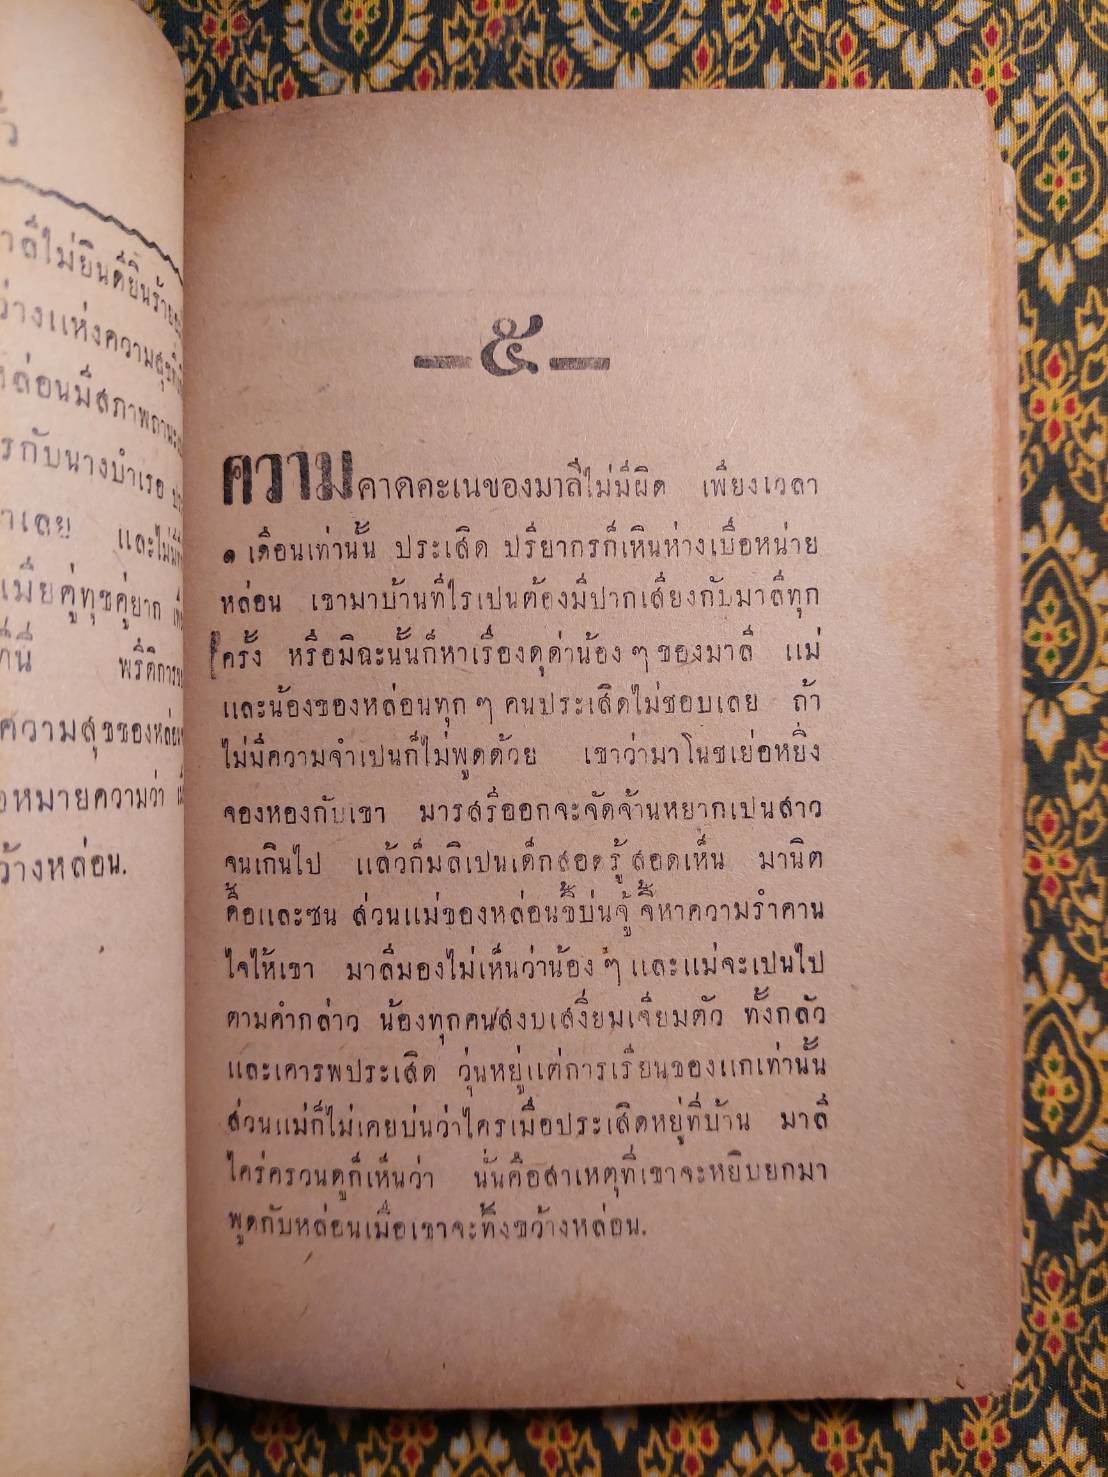 าลีไม่ยินดียินร้าย
ว่างแห่งความสุข
หล่อนมีสภาพถานะ
รกับนางบำเรอ
าเลย และไม่มี
เมียคู่ทุขคู่ยาก
ที่นี่ พรึติการน
ความสุขของหล่อน
อหมายความว่า
ว้างหล่อน.
—๕—
ความคาดคะเนของมาลีไม่มีผิด เพียงเวลา
๑ เดือนเท่านั้น ประเสิด ปรียากรก็เหินห่างเบื่อหน่าย
หล่อน เขามาบ้านทีไรเปนต้องมีปากเสียงกับมาลีทุก
ครั้ง หรือมิฉะนั้นก็หาเรื่องดุด่าน้อง ๆ ของมาลี แม่
และน้องของหล่อนทุก ๆ คนประเสิดไม่ชอบเลย ถ้า
ไม่มีความจำเปนก็ไม่พูดด้วย เขาว่ามาโนชเย่อหยิ่ง
จองหองกับเขา มารสรีออกจะจัดจ้านหยากเปนสาว
จนเกินไป แล้วก็มลิเปนเด็กสอดรู้สอดเห็น มานิต
ดื้อและซน ส่วนแม่ของหล่อนขี้บ่นจู้จี้หาความรำคาน
ใจไห้เขา มาลีมองไม่เห็นว่าน้อง ๆ และแม่จะเปนไป
ตามคำกล่าว น้องทุกคนสงบเสงี่ยมเจียมตัว ทั้งกลัว
และเคารพประเสิด วุ่นหยู่แต่การเรียนของแกเท่านั้น
ส่วนแม่ก็ไม่เคยบ่นว่าไครเมื่อประเสิดหยู่ที่บ้าน มาลี
ไคร่ครวนดูก็เห็นว่า นั่นคือสาเหตุที่เขาจะหยิบยกมา
พูดกับหล่อนเมื่อเขาจะทิ้งขว้างหล่อน.